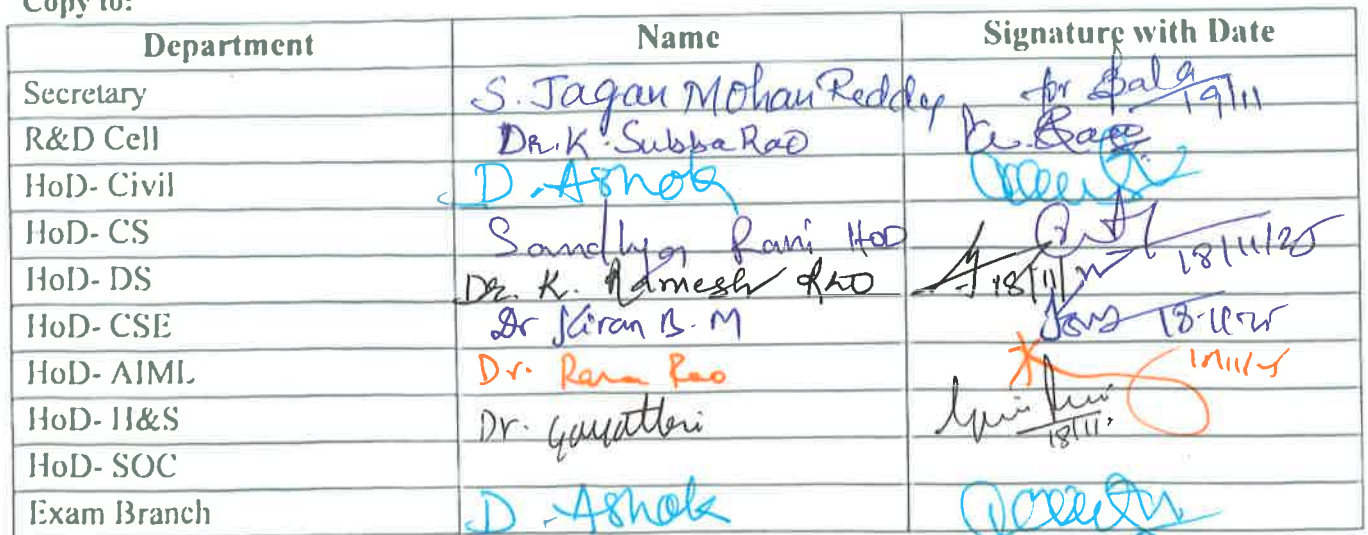 Copy to:
Department Name Signature with Date
Secretary S. Jagan Mohan Reddy for Bala 19/11
R&D Cell DR. K. Subba Rao K. Rao
HoD- Civil D. Ashok
HoD- CS Sandhya Rani HOD 18/11/25
HoD- DS Dr. K. Ramesh Rao 18/11/
HoD- CSE Dr Kiran B. M 18-11-25
HoD- AIML Dr. Rama Rao
HoD- H&S Dr. Gayathri 18/11.
HoD- SOC
Exam Branch D. Ashok